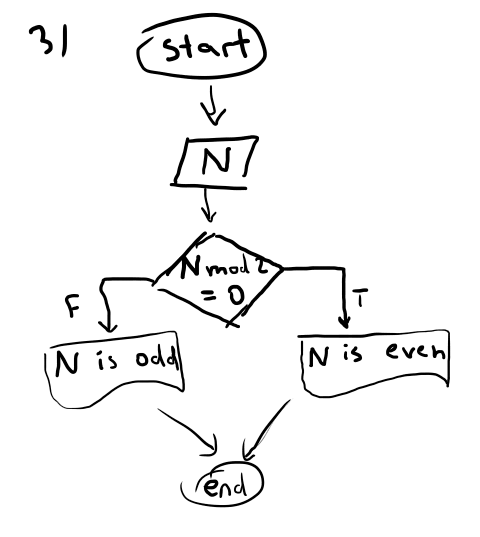 3)
start
N
N mod 2
= 0
F
T
N is odd
N is even
end